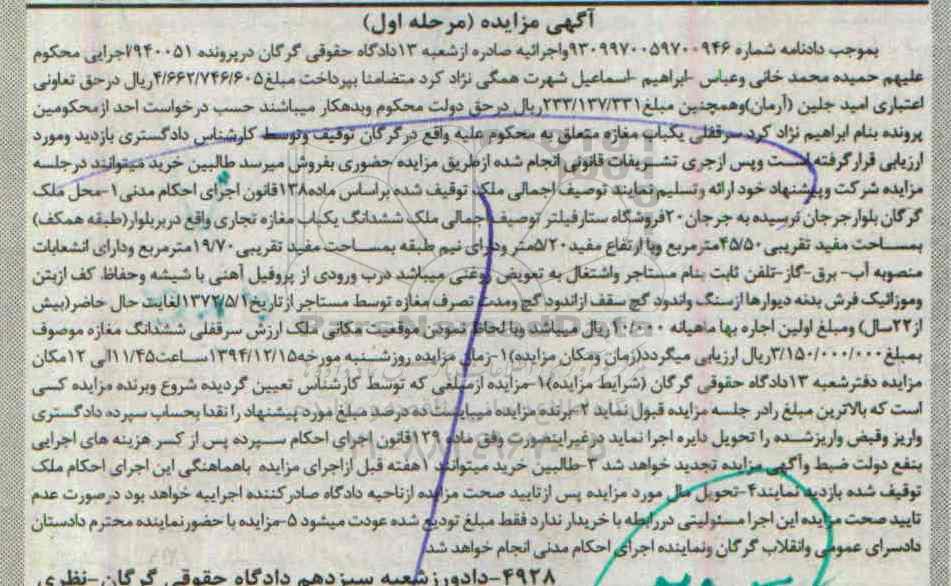 آگهی مزایده (مرحله اول)
بموجب دادنامه شماره ۹۳۰۹۹۷۰۰۵۹۷۰۰۹۴۶واجرائیه صادره ازشعبه ۱۳دادگاه حقوقی گرگان درپرونده ۹۴۰۰۵۱/اجرایی محکوم
علیهم حمیده محمد خانی وعباس -ابراهیم -اسماعیل شهرت همگی نژاد کرد متضامنا بپرداخت مبلغ۴/۶۶۲/۷۴۶/۶۰۵ریال درحق تعاونی
اعتباری امید جلین (آرمان)وهمچنین مبلغ۲۳۳/۱۳۷/۳۳۱ریال درحق دولت محکوم وبدهکار میباشند حسب درخواست احد ازمحکومین
پرونده بنام ابراهیم نژاد کرد سرقفلی یکباب مغازه متعلق به محکوم علیه واقع درگرگان توقیف وتوسط کارشناس دادگستری بازدید ومورد
ارزیابی قرارگرفته است وپس ازجری تشریفات قانونی انجام شده ازطریق مزایده حضوری بفروش میرسد طالبین خرید میتوانند درجلسه
مزایده شرکت وپیشنهاد خود ارائه وتسلیم نمایند توصیف اجمالی ملک توقیف شده براساس ماده۱۳۸قانون اجرای احکام مدنی۱-محل ملک
گرگان بلوارجرجان نرسیده به جرجان۲۰فروشگاه ستارفیلتر توصیف اجمالی ملک ششدانگ یکباب مغازه تجاری واقع دربربلوار(طبقه همکف)
بمساحت مفید تقریبی۴۵/۵۰مترمربع وبا ارتفاع مفید۵/۲۰متر ودرای نیم طبقه بمساحت مفید تقریبی۱۹/۷۰مترمربع ودارای انشعابات
منصوبه آب- برق-گاز-تلفن ثابت بنام مستاجر واشتغال به تعویض روغنی میباشد درب ورودی از پروفیل آهنی با شیشه وحفاظ کف ازبتن
وموزائیک فرش بدنه دیوارها ازسنگ واندود گچ سقف ازاندود گچ ومدت تصرف مغازه توسط مستاجر از تاریخ۱۳۷۲/۵/۱لغایت حال حاضر(بیش
از۲۲سال) ومبلغ اولین اجاره بها ماهیانه ۱۰/۰۰۰ریال میباشد وبا لحاظ نمودن موقعیت مکانی ملک ارزش سرقفلی ششدانگ مغازه موصوف
بمبلغ۳/۱۵۰/۰۰۰/۰۰۰ریال ارزیابی میگردد(زمان ومکان مزایده)۱-زمان مزایده روزشنبه مورخه۱۳۹۴/۱۲/۱۵ساعت۱۱/۴۵الی ۱۲مکان
مزایده دفترشعبه ۱۳دادگاه حقوقی گرگان (شرایط مزایده)۱-مزایده ازمبلغی که توسط کارشناس تعیین گردیده شروع وبرنده مزایده کسی
است که بالاترین مبلغ رادر جلسه مزایده قبول نماید ۲-برنده مزایده میبایست ده درصد مبلغ مورد پیشنهاد را نقدا بحساب سپرده دادگستری
واریز وقبض واریزشده را تحویل دایره اجرا نماید درغیراینصورت وفق ماده ۱۲۹قانون اجرای احکام سپرده پس از کسر هزینه های اجرایی
بنفع دولت ضبط وآگهی مزایده تجدید خواهد شد ۳-طالبین خرید میتوانند ۱هفته قبل ازاجرای مزایده باهماهنگی این اجرای احکام ملک
توقیف شده بازدید نمایند۴-تحویل مال مورد مزایده پس ازتایید صحت مزایده ازناحیه دادگاه صادرکننده اجراییه خواهد بود درصورت عدم
تایید صحت مزایده این اجرا مسئولیتی دررابطه با خریدار ندارد فقط مبلغ تودیع شده عودت میشود ۵-مزایده با حضورنماینده محترم دادستان
دادسرای عمومی وانقلاب گرگان ونماینده اجرای احکام مدنی انجام خواهد شد
۴۹۲۸-دادورز شعبه سیزدهم دادگاه حقوقی گرگان-نظری